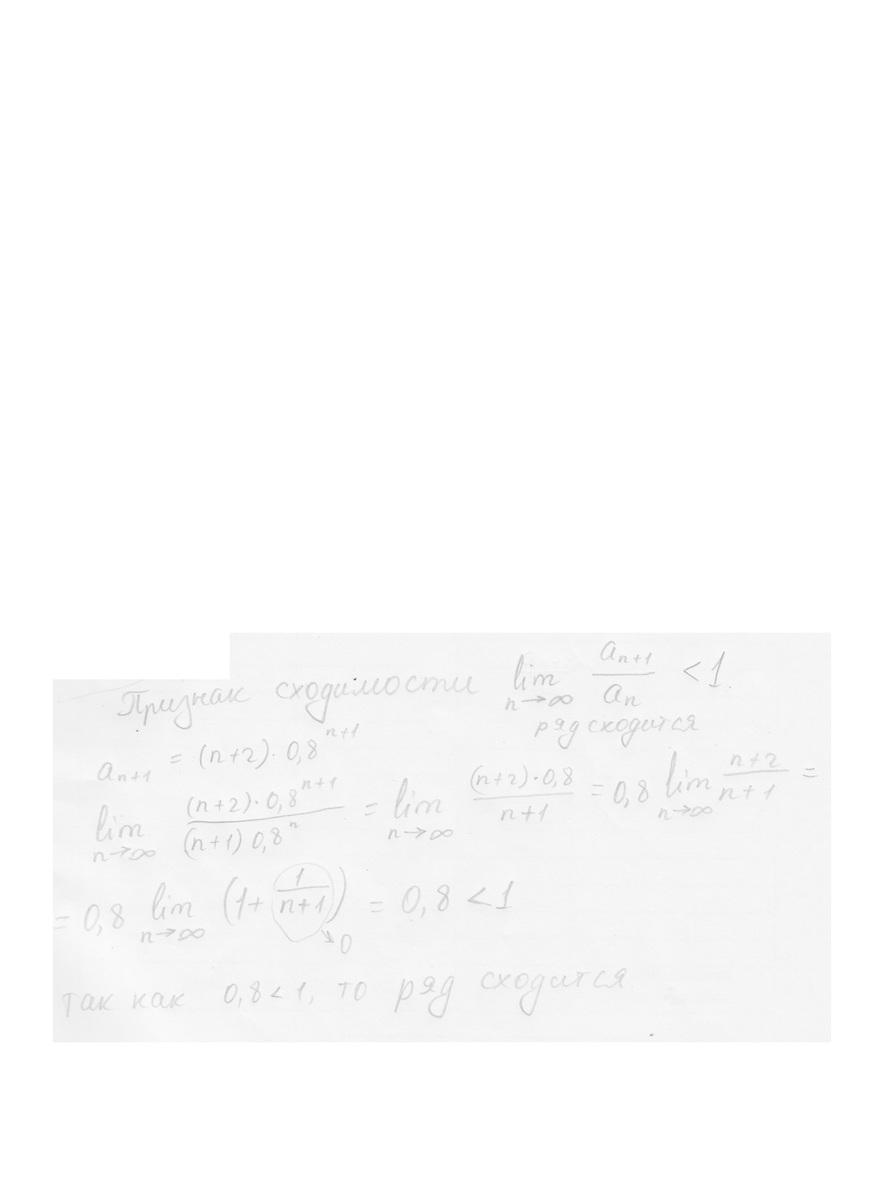 Признак сходимости lim n→∞ a_{n+1}/a_n < 1
ряд сходится
a_{n+1} = (n+2)·0,8^{n+1}
lim n→∞ (n+2)·0,8^{n+1}/(n+1)0,8^n = lim n→∞ (n+2)·0,8/n+1 = 0,8 lim n→∞ n+2/n+1 =
= 0,8 lim n→∞ (1+ 1/n+1) = 0,8 < 1
→0
так как 0,8 < 1, то ряд сходится